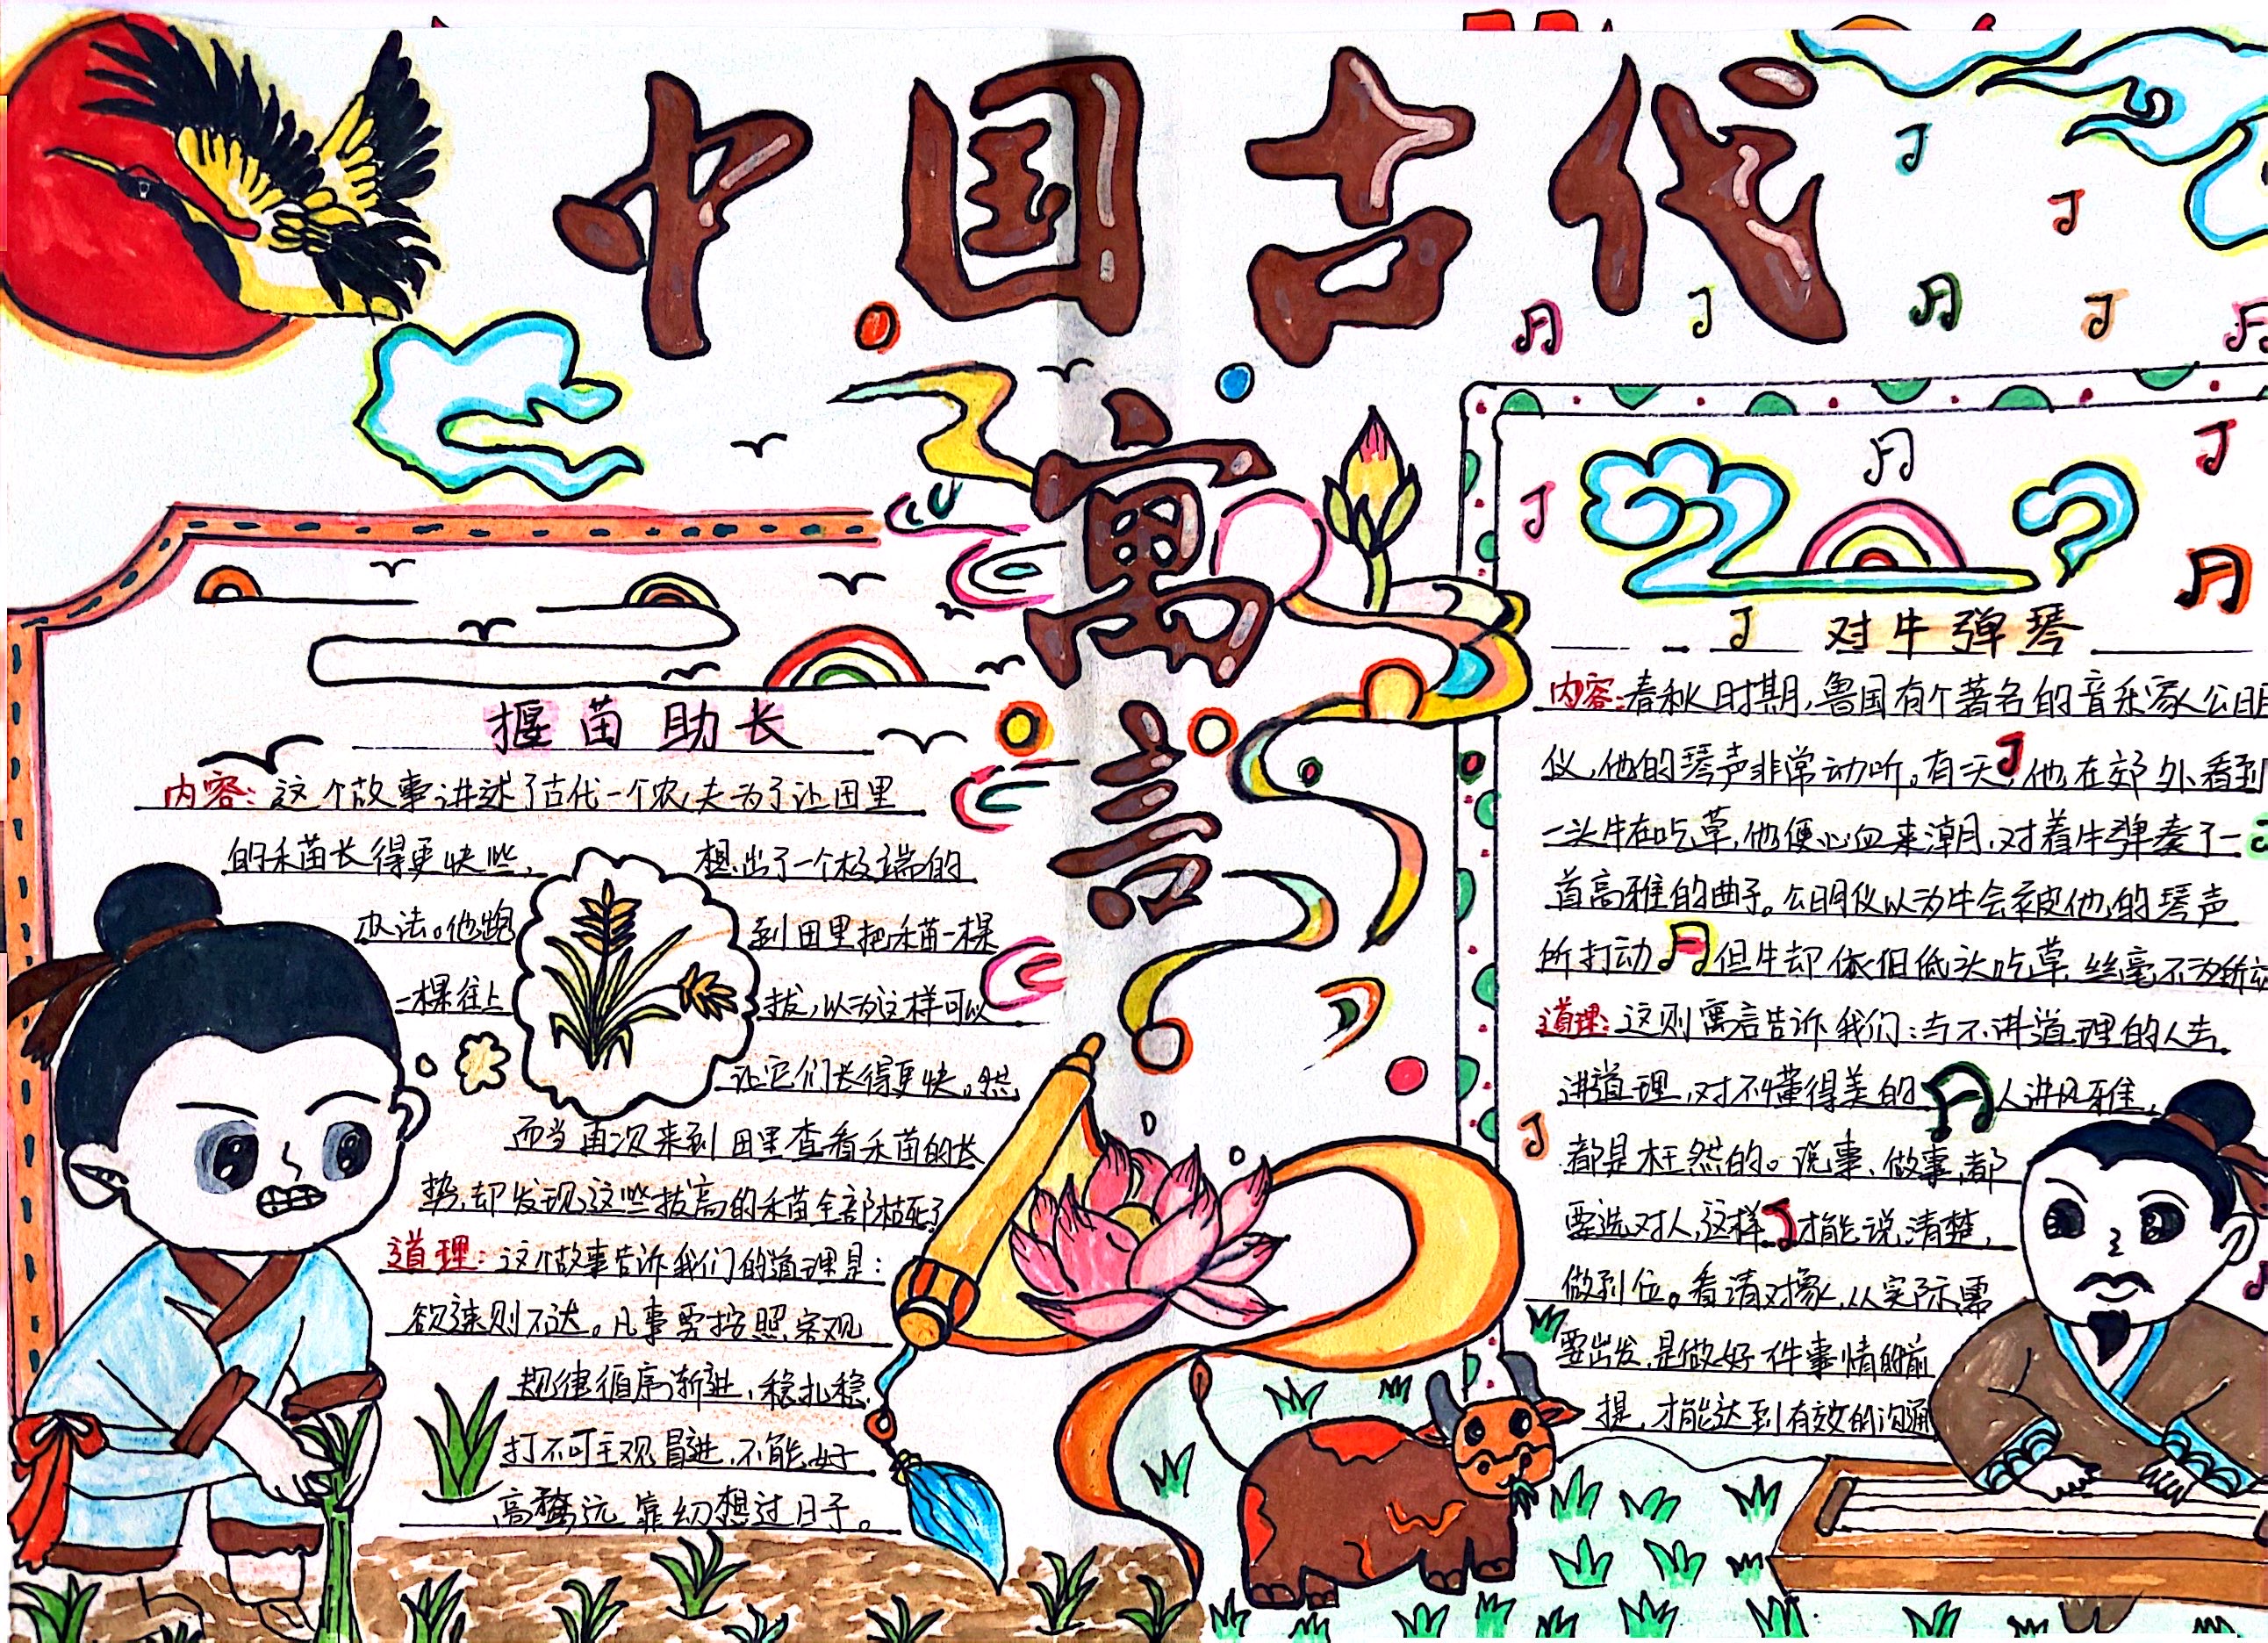 中国古代
寓言
揠苗助长
内容：这个故事讲述了古代一个农夫为了让田里
的禾苗长得更快些，想出了一个极端的
办法。他跑到田里把禾苗一棵
一棵往上拔，以为这样可以
让它们长得更快。然
而当再次来到田里查看禾苗的长
势，却发现这些拔高的禾苗全部枯死了
道理：这个故事告诉我们的道理是：
欲速则不达。凡事要按照客观
规律循序渐进，稳扎稳
打不可主观冒进，不能好
高骛远靠幻想过日子。
对牛弹琴
内容：春秋时期，鲁国有个著名的音乐家公明
仪，他的琴声非常动听。有一天，他在郊外看到
一头牛在吃草，他便心血来潮，对着牛弹奏了一
首高雅的曲子。公明仪以为牛会被他的琴声
所打动但牛却依旧低头吃草，丝毫不为所动
道理：这则寓言告诉我们：与不讲道理的人去
讲道理，对不懂得美的人讲风雅，
都是枉然的。说事、做事，都
要选对人，这样才能说清楚，
做到位。看清对象，从实际需
要出发，是做好一件事情的前
提，才能达到有效的沟通